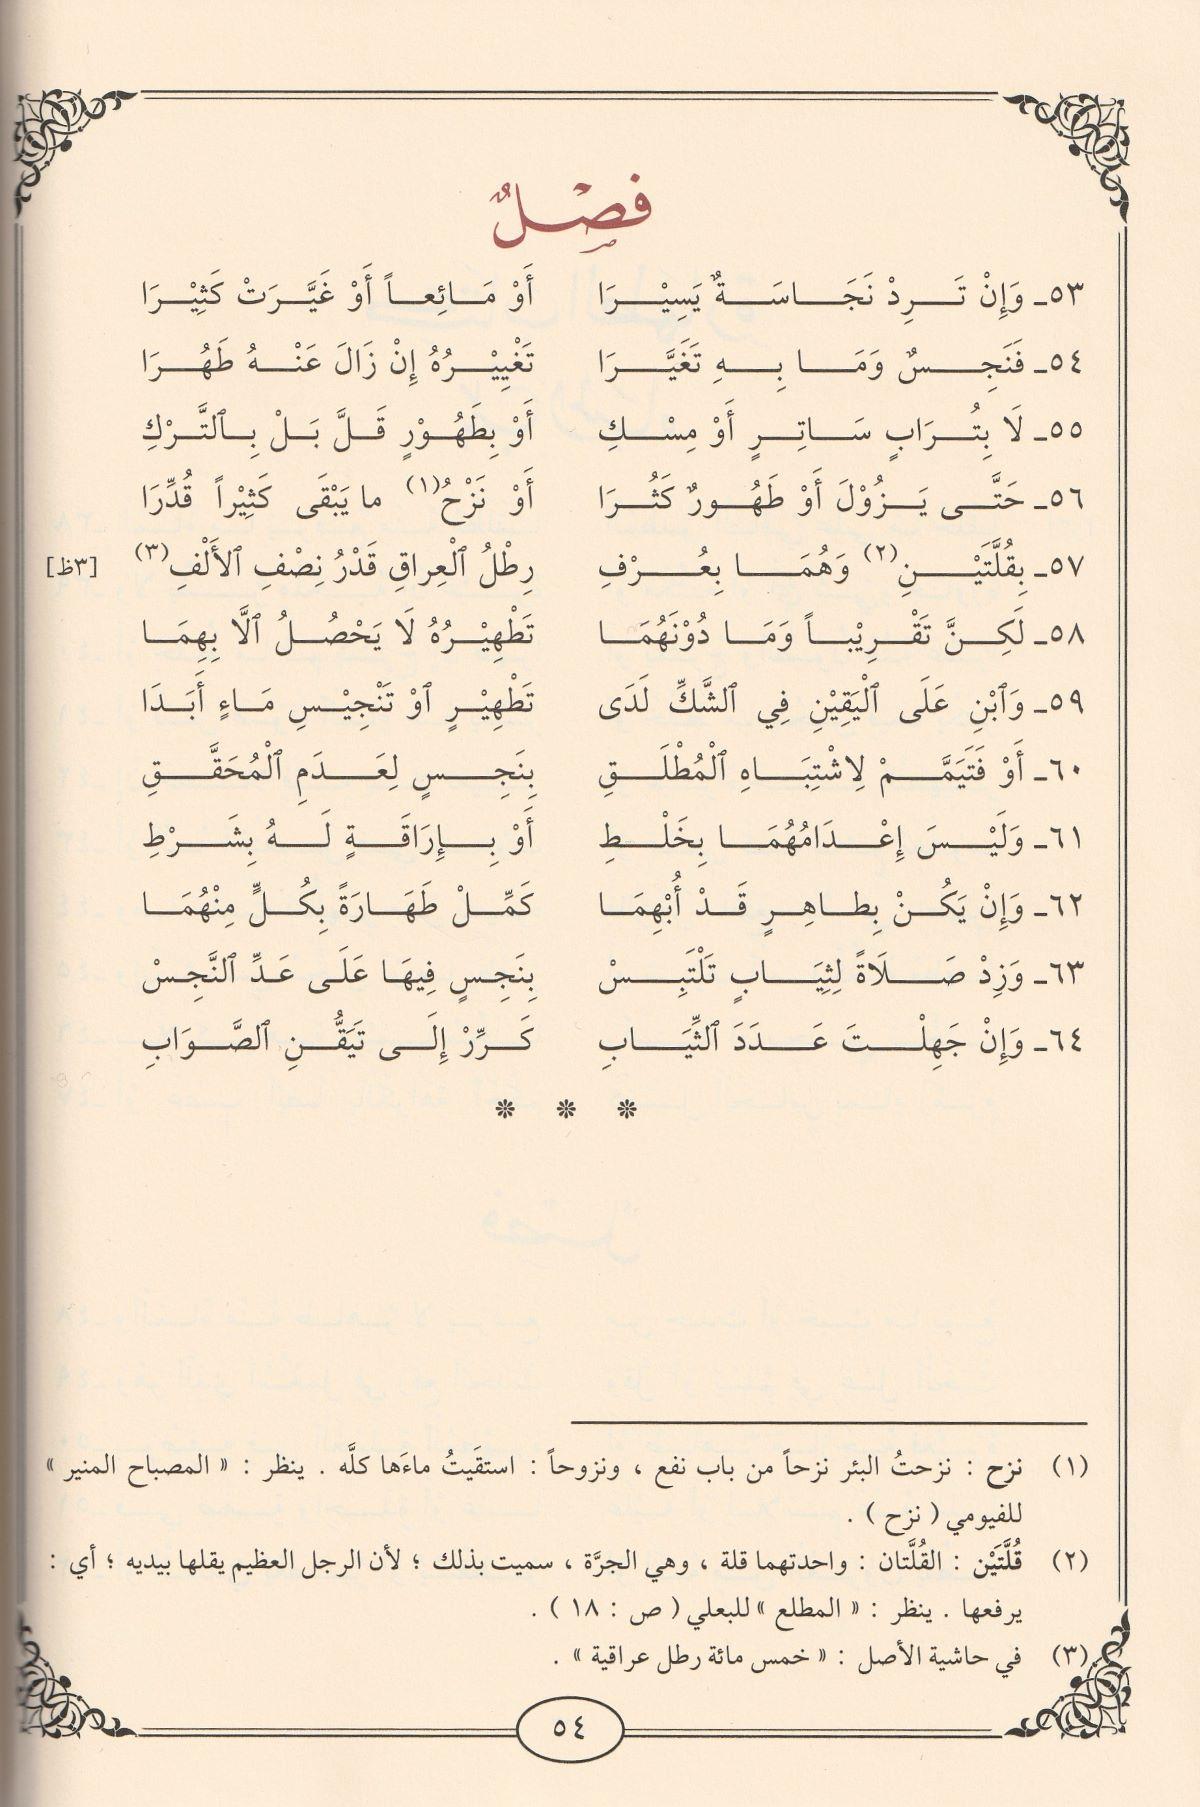 فَصْلٌ
٥٣ـ وَإِنْ تَرِدْ نَجَاسَةٌ يَسِيْرَا أَوْ مَائِعاً أَوْ غَيَّرَتْ كَثِيْرَا
٥٤ـ فَنَجِسٌ وَمَا بِهِ تَغَيَّرَا تَغْيِيْرُهُ إِنْ زَالَ عَنْهُ طَهُرَا
٥٥ـ لَا بِتُرَابٍ سَاتِرٍ أَوْ مِسْكِ أَوْ بِطَهُوْرٍ قَلَّ بَلْ بِٱلتَّرْكِ
٥٦ـ حَتَّى يَزُوْلَ أَوْ طَهُورٌ كَثُرَا أَوْ نَزْحُ(١) ما يَبْقَى كَثِيْراً قُدِّرَا
٥٧ـ بِقُلَّتَيْنِ(٢) وَهُمَا بِعُرْفِ رِطْلُ ٱلْعِراقِ قَدْرُ نِصْفِ ٱلأَلْفِ(٣) [٣ظ]
٥٨ـ لَكِنَّ تَقْرِيْباً وَمَا دُوْنَهُمَا تَطْهِيْرُهُ لَا يَحْصُلُ ٱلَّا بِهِمَا
٥٩ـ وَٱبْنِ عَلَى ٱلْيَقِيْنِ فِي ٱلشَّكِّ لَدَى تَطْهِيْرٍ ٱوْ تَنْجِيْسِ مَاءٍ أَبَدَا
٦٠ـ أَوْ فَتَيَمَّمْ لِاشْتِبَاهِ ٱلْمُطْلَقِ بِنَجِسٍ لِعَدَمِ ٱلْمُحَقَّقِ
٦١ـ وَلَيْسَ إِعْدَامُهُمَا بِخَلْطِ أَوْ بِإِرَاقَةٍ لَهُ بِشَرْطِ
٦٢ـ وَإِنْ يَكُنْ بِطاهِرٍ قَدْ أُبْهِمَا كَمِّلْ طَهَارَةً بِكُلٍّ مِنْهُمَا
٦٣ـ وَزِدْ صَلَاةً لِثِيَابٍ تَلْتَبِسْ بِنَجِسٍ فِيهَا عَلَى عَدِّ ٱلنَّجِسْ
٦٤ـ وَإِنْ جَهِلْتَ عَدَدَ ٱلثِّيَابِ كَرِّرْ إِلَى تَيَقُّنِ ٱلصَّوَابِ
* * *
(١) نزح : نزحتُ البئر نزحاً من باب نفع ، ونزوحاً : استقَيتُ ماءَها كلَّه . ينظر : « المصباح المنير »
للفيومي ( نزح ) .
(٢) قُلَّتَيْن : القُلَّتان : واحدتهما قلة ، وهي الجرَّة ، سميت بذلك ؛ لأن الرجل العظيم يقلها بيديه ؛ أي :
يرفعها . ينظر : « المطلع » للبعلي ( ص : ١٨ ) .
(٣) في حاشية الأصل : « خمس مائة رطل عراقية » .
٥٤